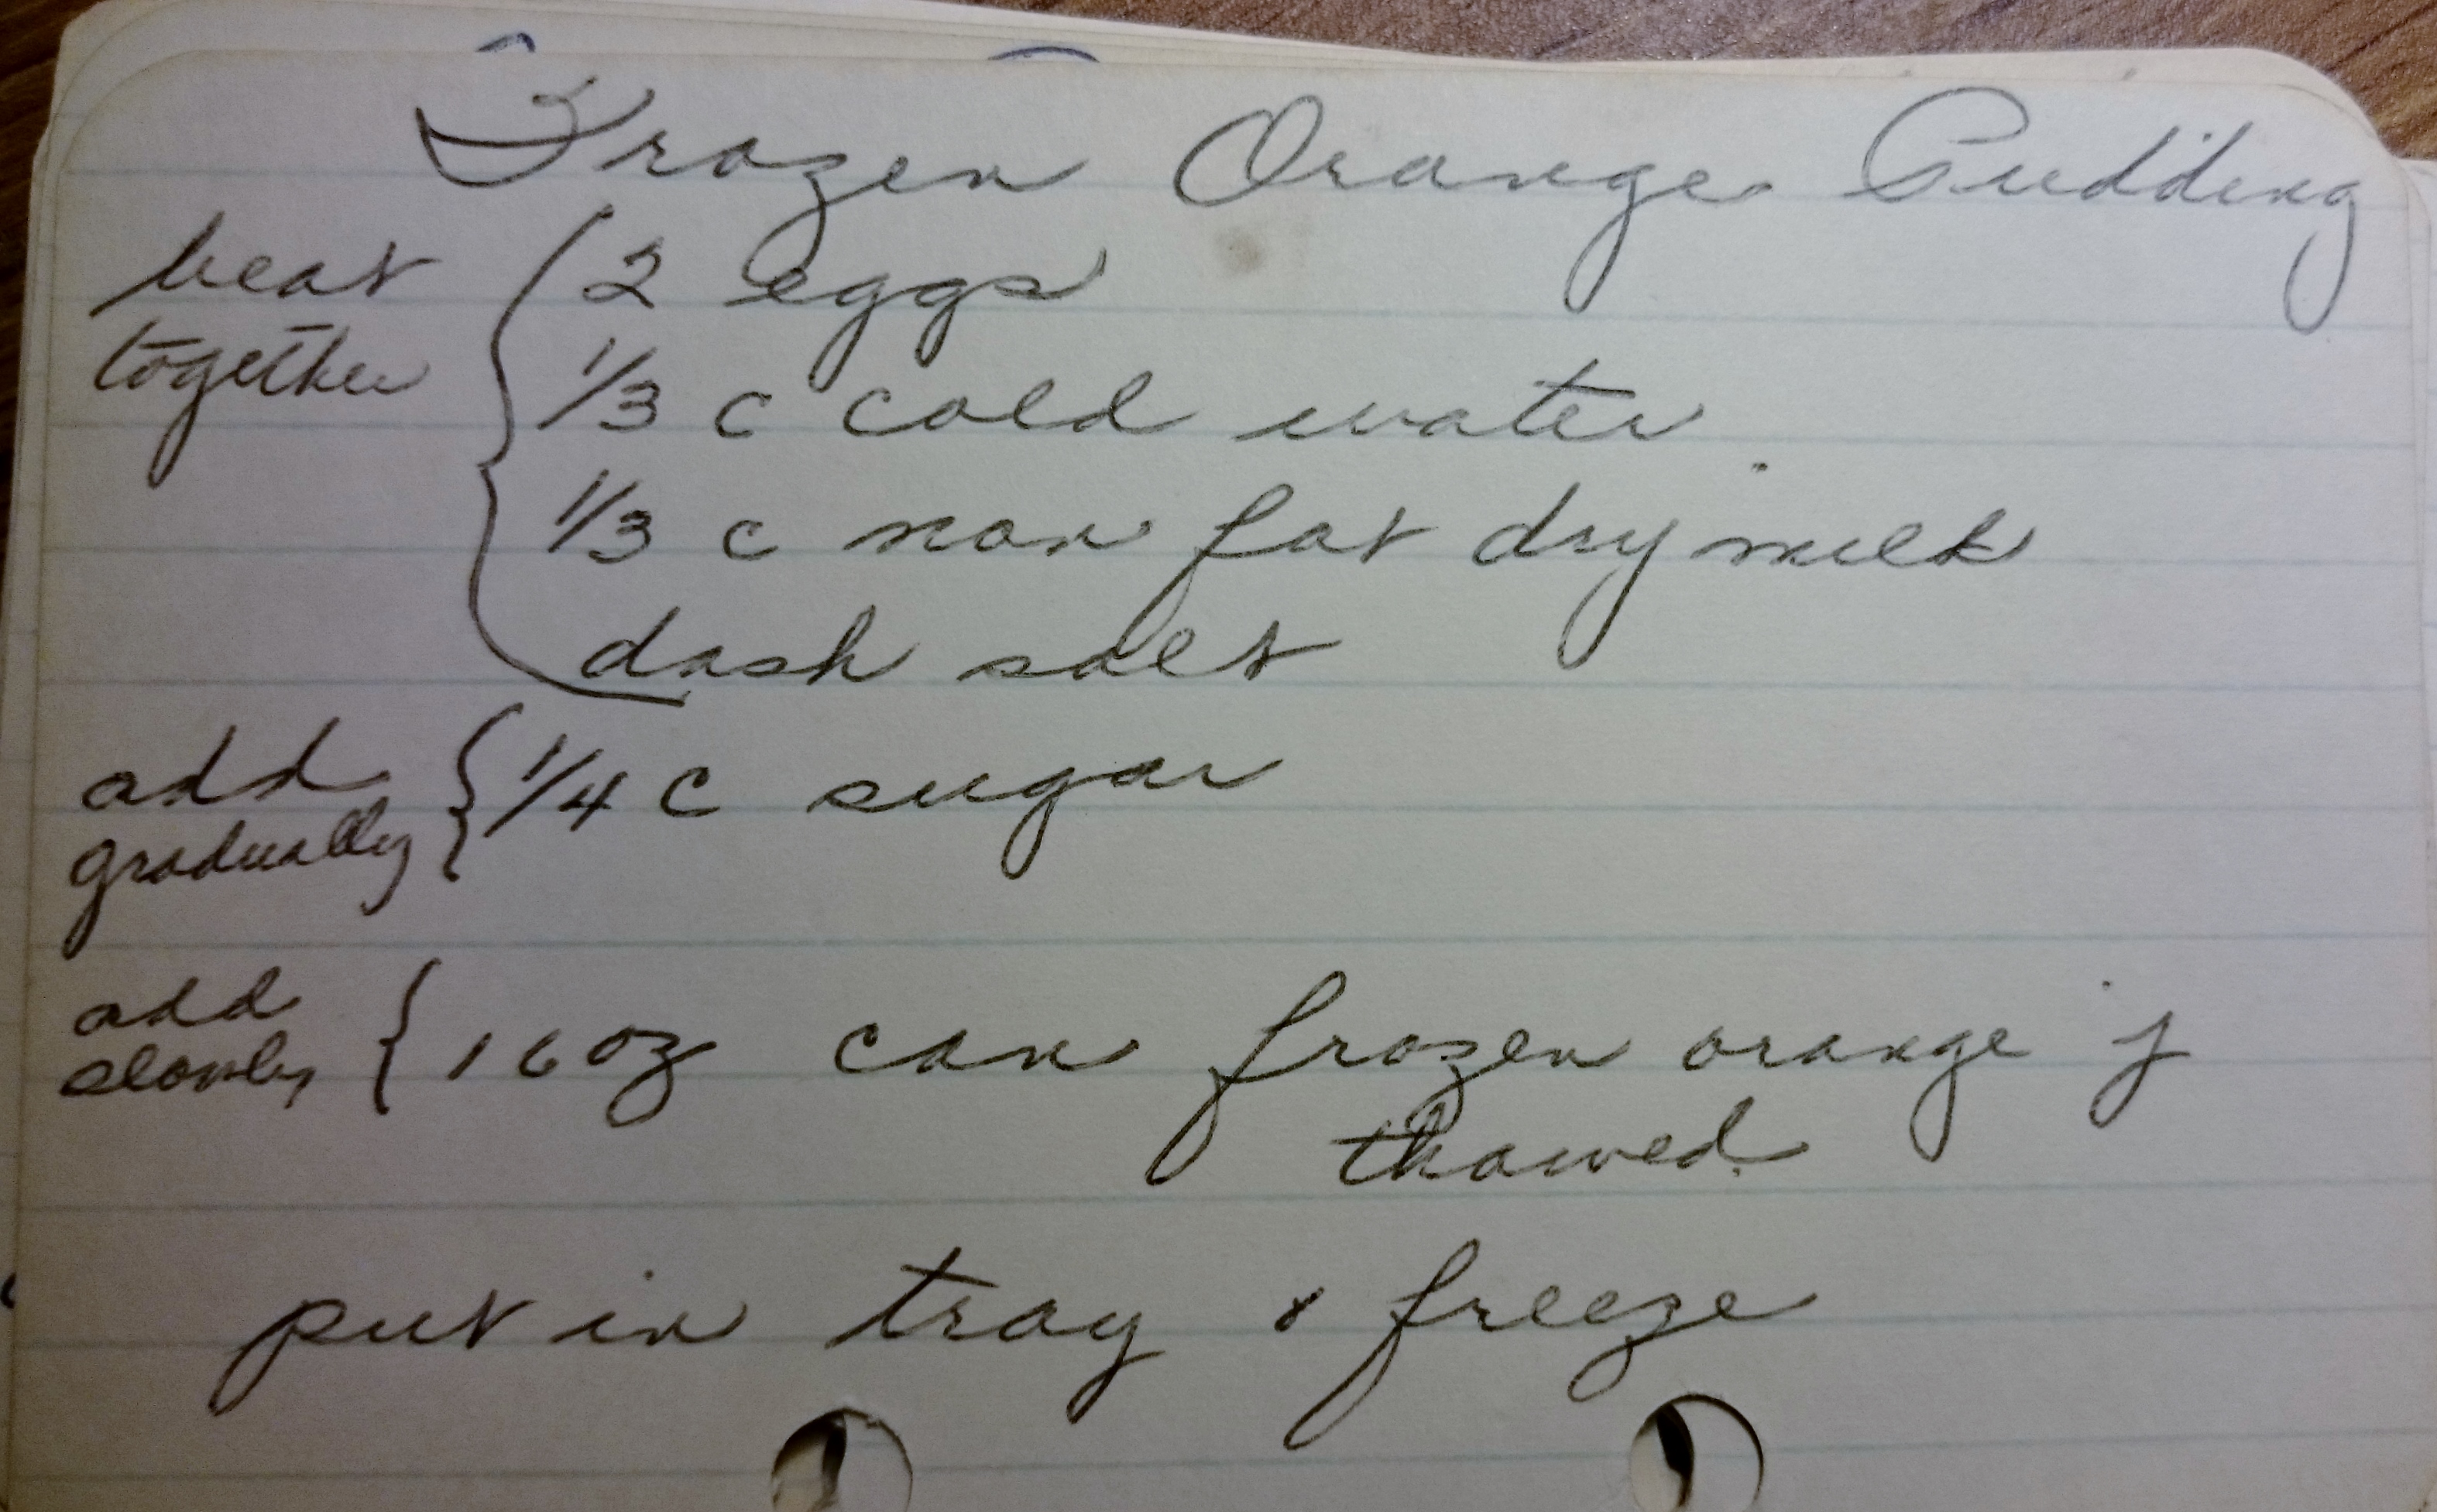 Frozen Orange Pudding
beat together { 2 eggs
1/3 c cold water
1/3 c non fat dry milk
dash salt
add gradually { 1/4 c sugar
add slowly { 1 6 oz can frozen orange j
thawed
put in tray & freeze